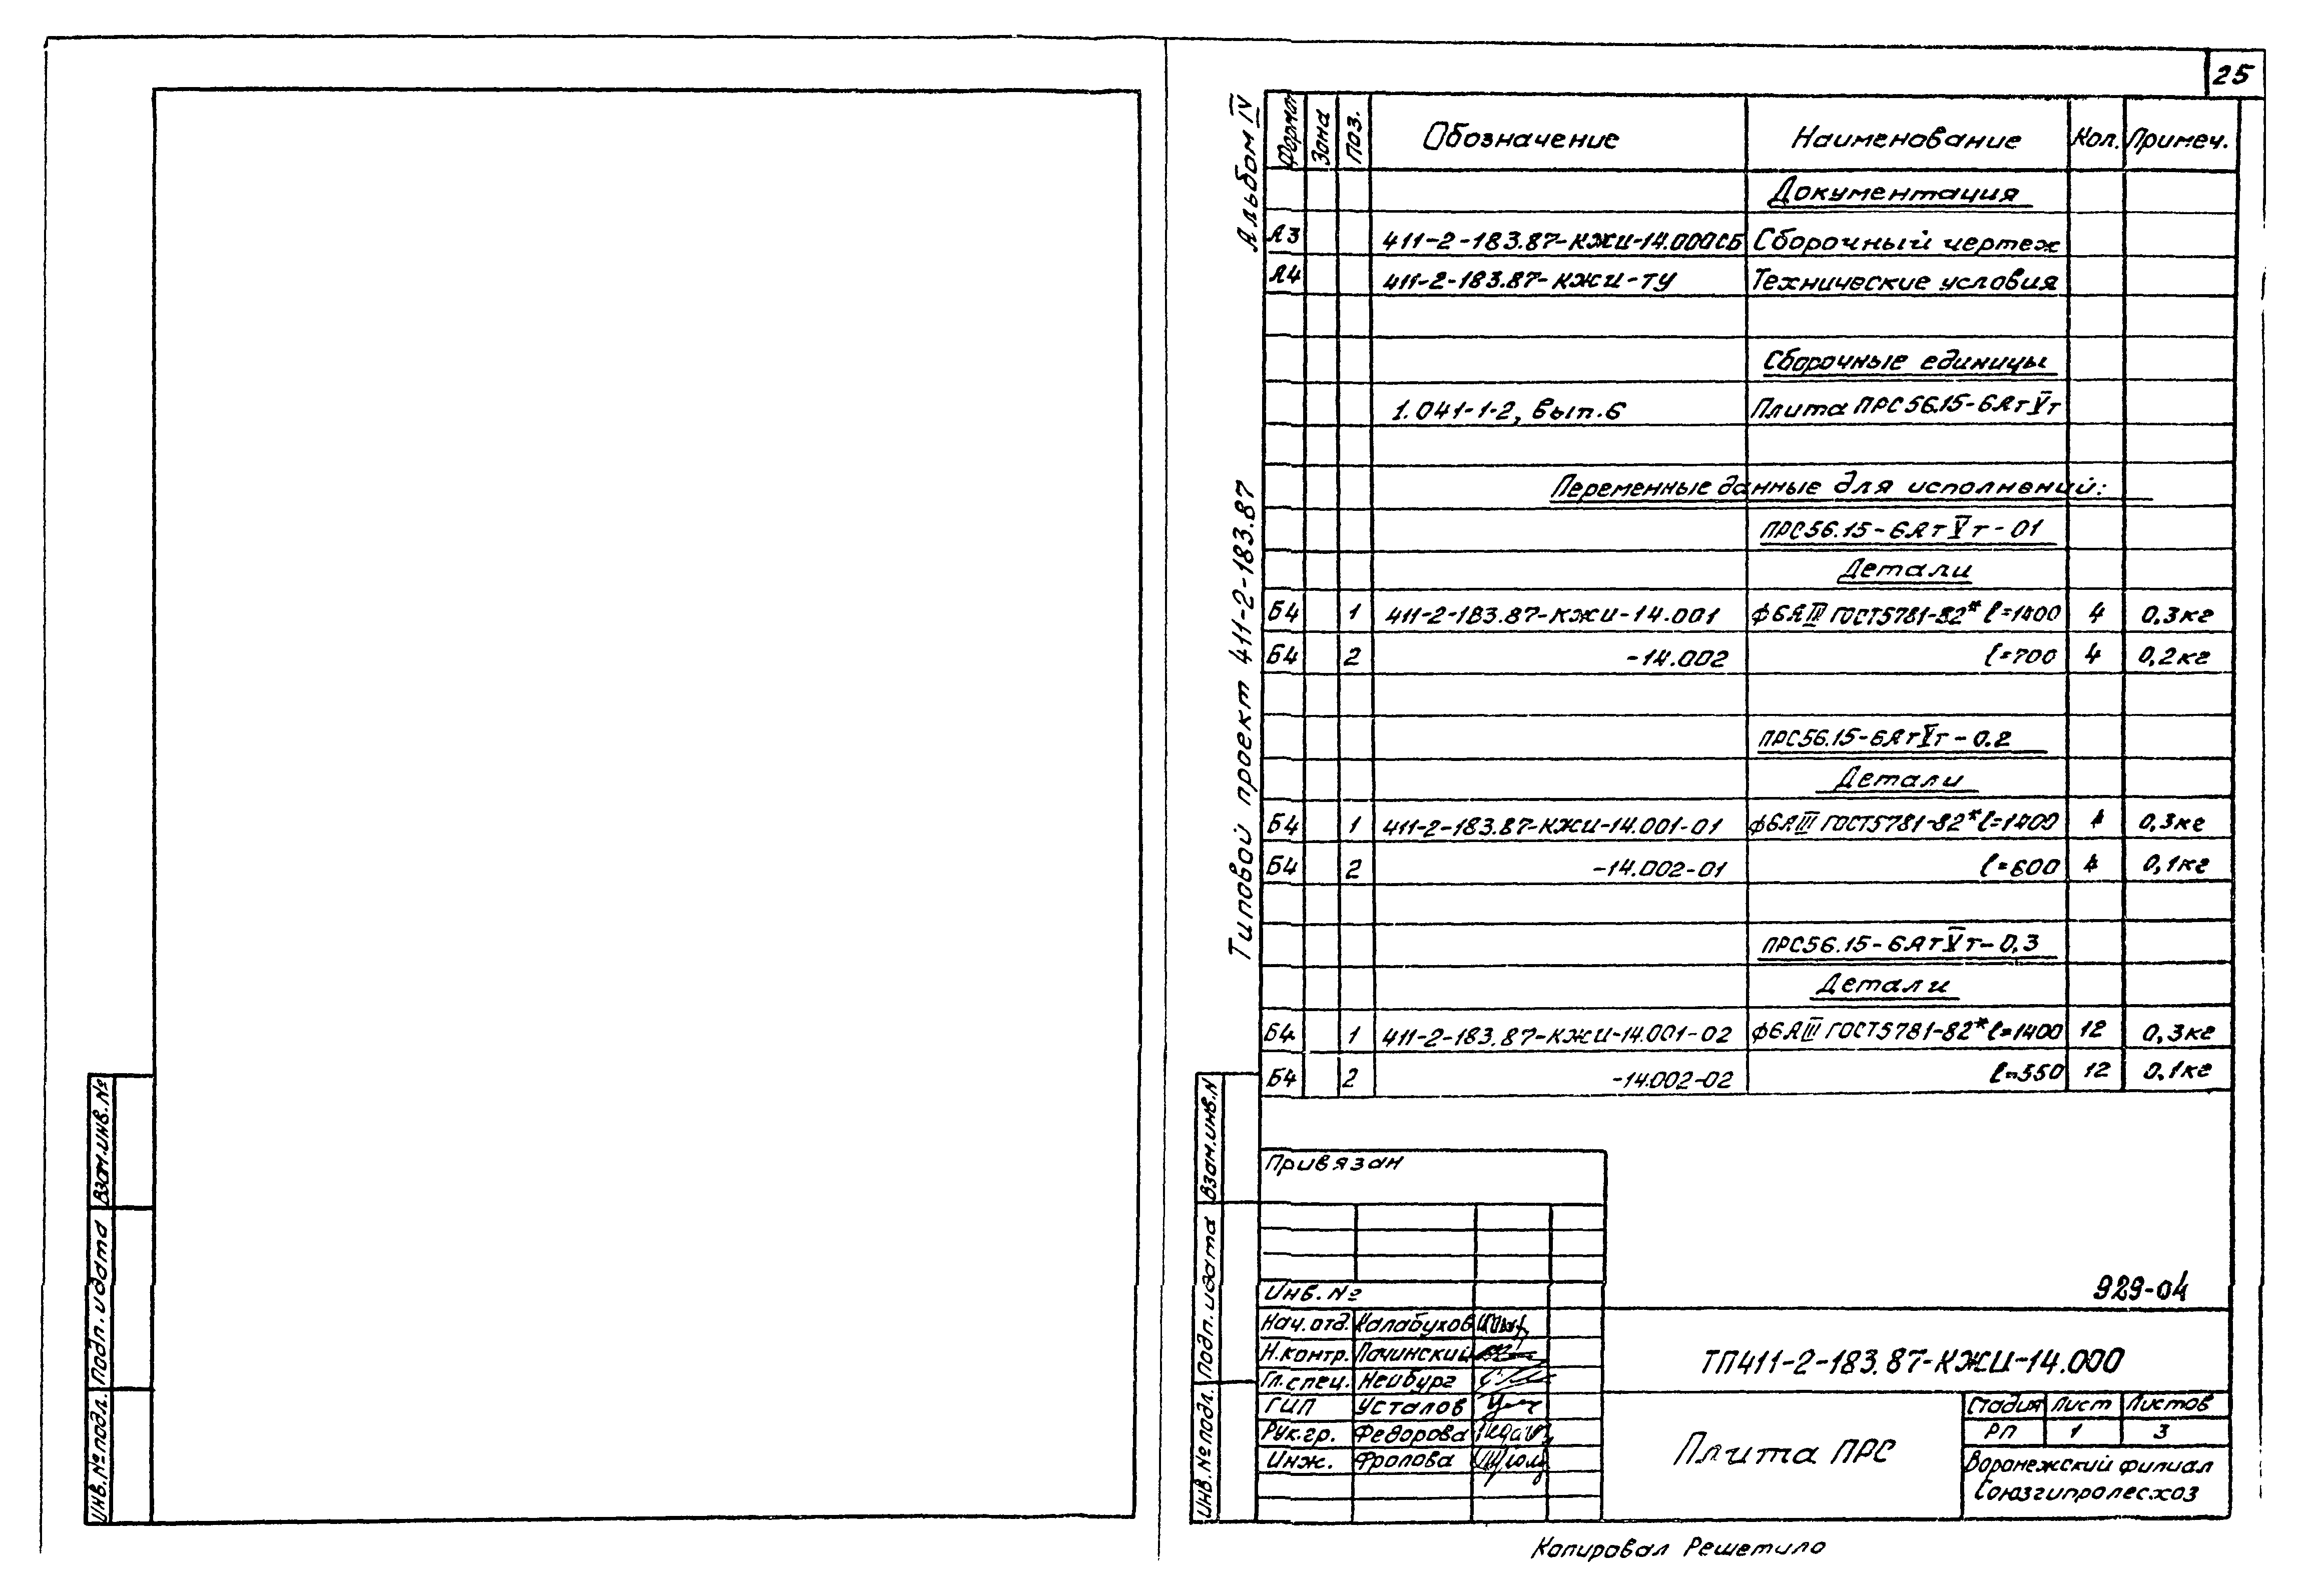 25
Альбом IV
Типовой проект 411-2-183.87
Формат Зона Поз. Обозначение Наименование Кол. Примеч.
Документация
А3 411-2-183.87-КЖИ-14.000СБ Сборочный чертеж
А4 411-2-183.87-КЖИ-ТУ Технические условия
Сборочные единицы
1.041-1-2, вып.6 Плита ПРС56.15-6АтVт
Переменные данные для исполнений:
ПРС56.15-6АтVт-01
Детали
Б4 1 411-2-183.87-КЖИ-14.001 ф6АIII ГОСТ5781-82* ℓ=1400 4 0,3кг
Б4 2 -14.002 ℓ=700 4 0,2кг
ПРС56.15-6АтVт-0.2
Детали
Б4 1 411-2-183.87-КЖИ-14.001-01 ф6АIII ГОСТ5781-82* ℓ=1400 4 0,3кг
Б4 2 -14.002-01 ℓ=600 4 0,1кг
ПРС56.15-6АтVт-0.3
Детали
Б4 1 411-2-183.87-КЖИ-14.001-02 ф6АIII ГОСТ5781-82* ℓ=1400 12 0,3кг
Б4 2 -14.002-02 ℓ=550 12 0,1кг
Привязан
Инв. №
929-04
Нач.отд. Калабухов
Н.контр. Пачинский
Гл.спец. Нейбург
ГИП Усталов
Рук.гр. Федорова
Инж. Фролова
ТП411-2-183.87-КЖИ-14.000
Плита ПРС
Стадия Лист Листов
РП 1 3
Воронежский филиал
Союзгипролесхоз
Копировал Решетило
Взам.инв.№
Подп. и дата
Инв.№ подл.
Взам.инв.N
Подп. и дата
Инв.№ подл.